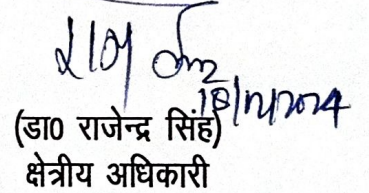 18/12/2024
(डा0 राजेन्द्र सिंह)
क्षेत्रीय अधिकारी